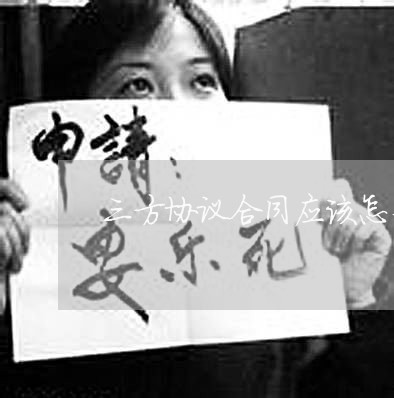 申請：
三方协议合同应该怎
安乐死